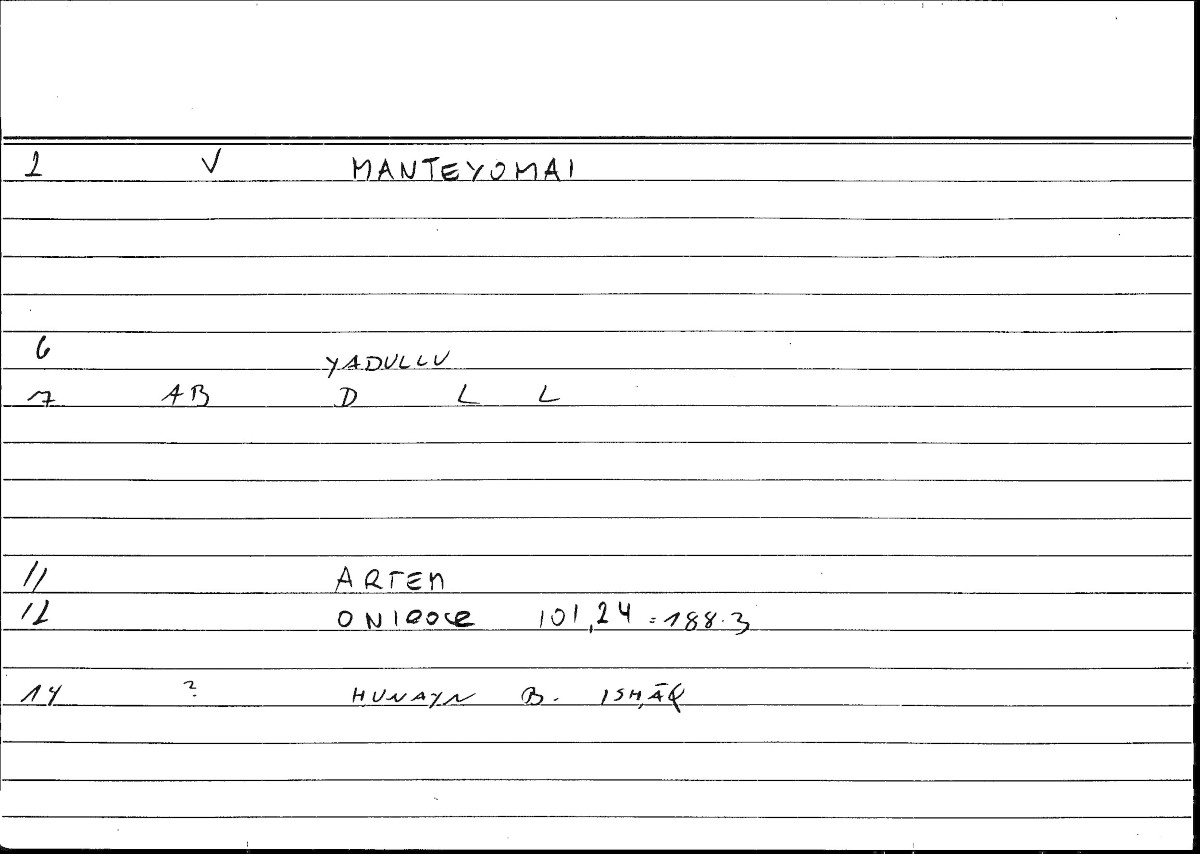 1 V ΜΑΝΤΕΥΟΜΑΙ
6 YADULLU
7 AB D L L
11 ARTEM
12 ONIROCR 101,24 = 188.3
14 ? HUNAYN B. ISḤĀQ